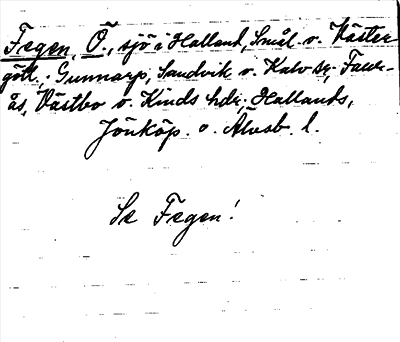 Fegen, Ö., sjö i Halland, Smål. o. Väster-
götl.; Gunnarp, Sandvik o. Kalv sn; Faur-
ås, Västbo o. Kinds hdr; Hallands,
Jönköp. o. Älvsb. l.
Se Fegen!